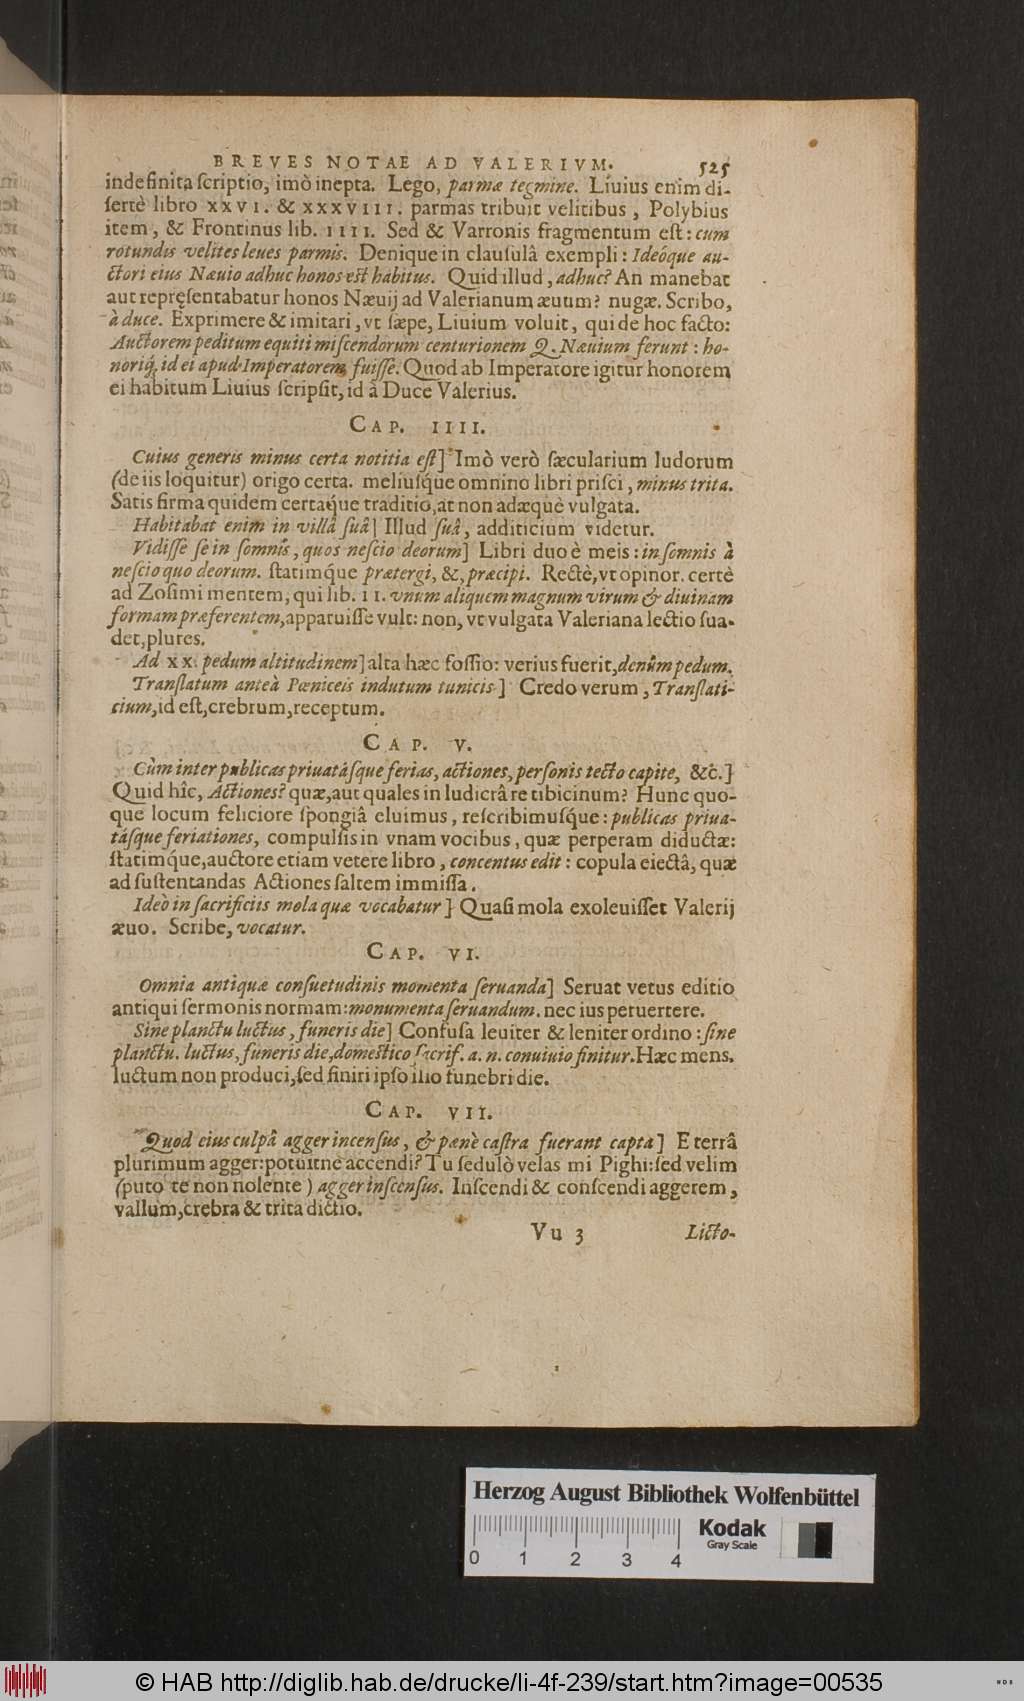 BREVES NOTAE AD VALERIVM. 525
indefinita ſcriptio, imò inepta. Lego, parmæ tegmine. Liuius enim di-
ſertè libro XXVI. & XXXVIII. parmas tribuit velitibus, Polybius
item, & Frontinus lib. IIII. Sed & Varronis fragmentum eſt: cum
rotundis velites leues parmis. Denique in clauſulâ exempli: Ideóque au-
ctori eius Næuio adhuc honos est habitus. Quid illud, adhuc? An manebat
aut repręſentabatur honos Næuij ad Valerianum æuum? nugæ. Scribo,
à duce. Exprimere & imitari, vt ſæpe, Liuium voluit, qui de hoc facto:
Auctorem peditum equiti miſcendorum centurionem Q. Næuium ferunt: ho-
noriq́, id ei apud Imperatorem fuiſſe. Quod ab Imperatore igitur honorem
ei habitum Liuius ſcripſit, id à Duce Valerius.
CAP. IIII.
Cuius generis minus certa notitia eſt] Imò verò ſæcularium ludorum
(de iis loquitur) origo certa. meliuſque omnino libri priſci, minus trita.
Satis firma quidem certaq́ue traditio, at non adæquè vulgata.
Habitabat enim in villâ ſuâ] Illud ſuâ, additicium videtur.
Vidiſſe ſe in ſomnis, quos neſcio deorum] Libri duo è meis: in ſomnis à
neſcio quo deorum. ſtatimq́ue prætergi, &, præcipi. Rectè, vt opinor. certè
ad Zoſimi mentem, qui lib. II. vnum aliquem magnum virum & diuinam
formam præferentem, apparuiſſe vult: non, vt vulgata Valeriana lectio ſua-
det, plures.
Ad XX. pedum altitudinem] alta hæc foſſio: verius fuerit, denûm pedum.
Tranſlatum anteà Pœniceis indutum tunicis] Credo verum, Tranſlati-
cium, id eſt, crebrum, receptum.
CAP. V.
Cùm inter publicas priuatáſque ferias, actiones, perſonis tecto capite, &c.]
Quid hîc, Actiones? quæ, aut quales in ludicrâ re tibicinum? Hunc quo-
que locum feliciore ſpongiâ eluimus, reſcribimuſq́ue: publicas priua-
táſque feriationes, compulſis in vnam vocibus, quæ perperam diductæ:
ſtatimq́ue, auctore etiam vetere libro, concentus edit: copula eiectâ, quæ
ad ſuſtentandas Actiones ſaltem immiſſa.
Ideò in ſacrificiis mola quæ vocabatur] Quaſi mola exoleuiſſet Valerij
æuo. Scribe, vocatur.
CAP. VI.
Omnia antiquæ conſuetudinis momenta ſeruanda] Seruat vetus editio
antiqui ſermonis normam: monumenta ſeruandum. nec ius peruertere.
Sine planctu luctus, funeris die] Confuſa leuiter & leniter ordino: ſine
planctu. luctus, funeris die, domeſtico ſacrif. a. n. conuiuio finitur. Hæc mens.
luctum non produci, ſed finiri ipſo illo funebri die.
CAP. VII.
Quod eius culpâ agger incenſus, & pænè caſtra fuerant capta] E terrâ
plurimum agger: potuitne accendi? Tu ſedulò velas mi Pighi: ſed velim
(puto te non nolente) agger inſcenſus. Inſcendi & conſcendi aggerem,
vallum, crebra & trita dictio.
Vu 3 Licto-
Herzog August Bibliothek Wolfenbüttel
Kodak
Gray Scale
0 1 2 3 4
© HAB http://diglib.hab.de/drucke/li-4f-239/start.htm?image=00535